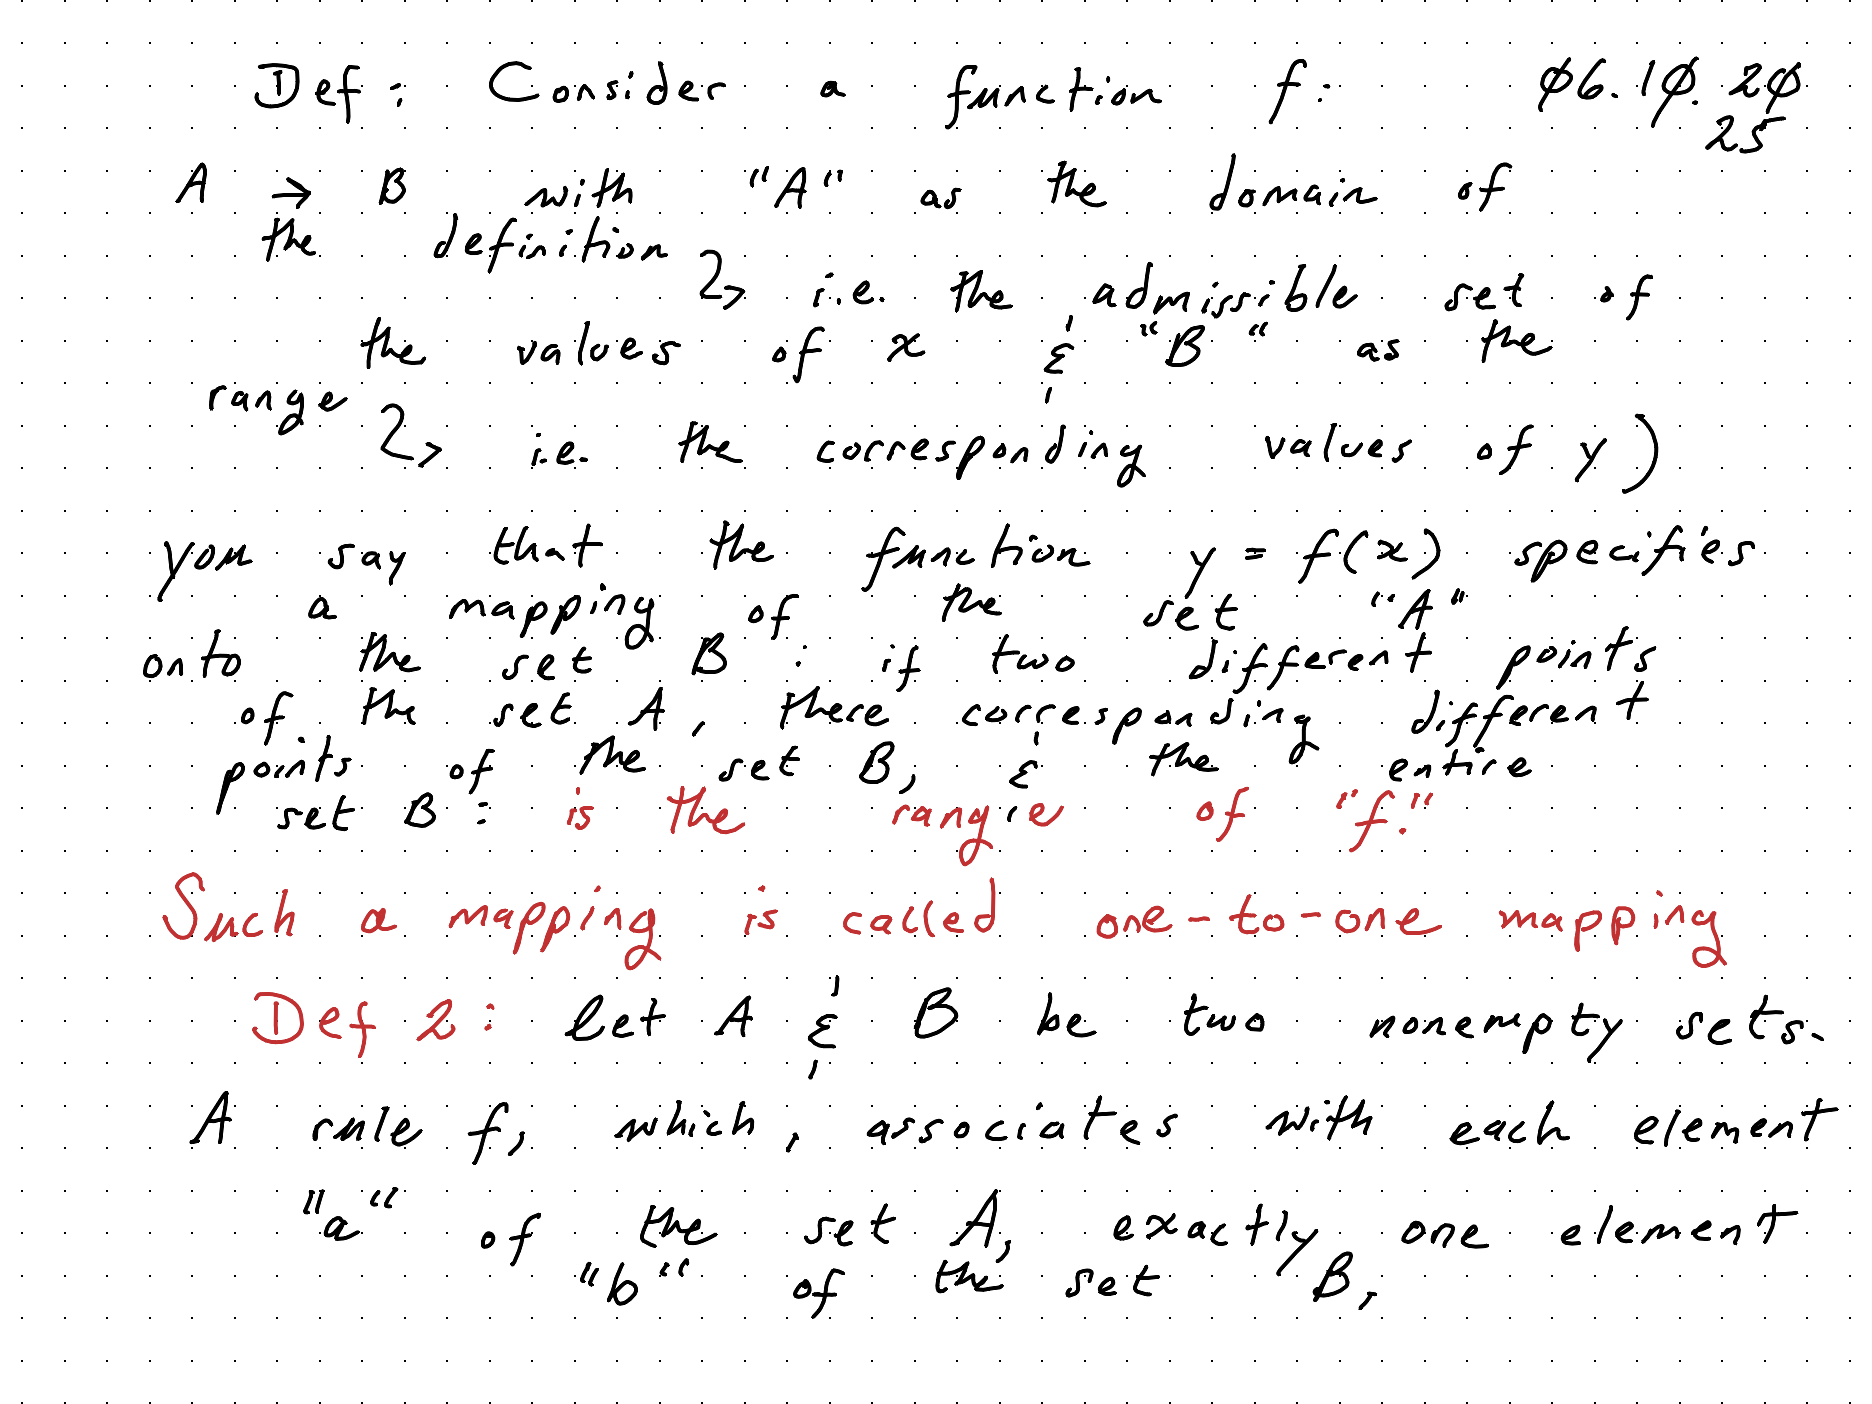 Def: Consider a function f: 06.10.20
25
A → B with "A" as the domain of
the definition
↳ i.e. the admissible set of
the values of x & "B" as the
range
↳ i.e. the corresponding values of y)
you say that the function y = f(x) specifies
a mapping of the set "A"
onto the set B: if two different points
of the set A, there corresponding different
points of the set B, & the entire
set B: is the range of "f."
Such a mapping is called one-to-one mapping
Def 2: let A & B be two nonempty sets.
A rule f, which, associates with each element
"a" of the set A, exactly one element
"b" of the set B,